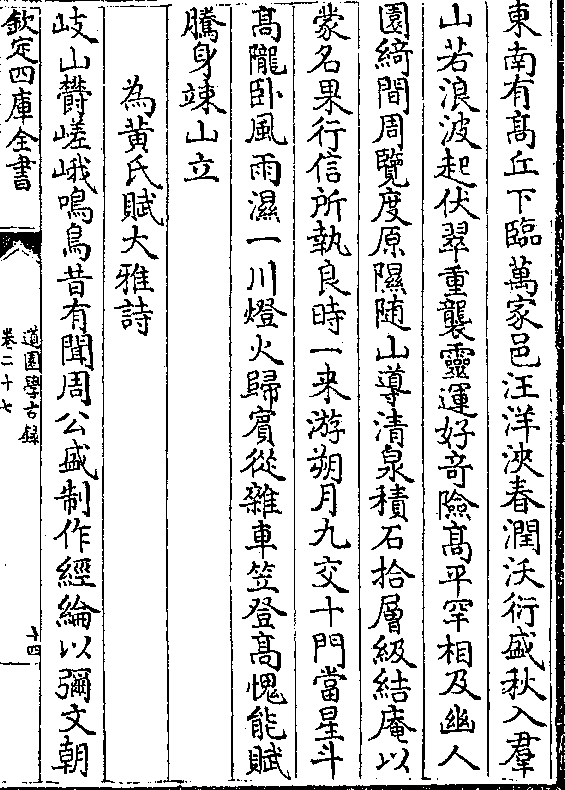 東南有髙丘下臨萬家邑汪洋泱春潤沃衍盛秋入羣
山若浪波起伏翠重襲靈運好竒險髙平罕相及幽人
園綺間周覽度原隰随山導清泉積石拾層級結庵以
蒙名果行信所執良時一来游朔月九交十門當星斗
髙隴卧風雨濕一川燈火歸賓從雜車笠登髙愧能賦
騰身竦山立
為黄氏賦大雅詩
岐山欝嵯峨鳴鳥昔有聞周公盛制作經綸以彌文朝
欽定四庫全書
道園學古録
卷二十七
十四